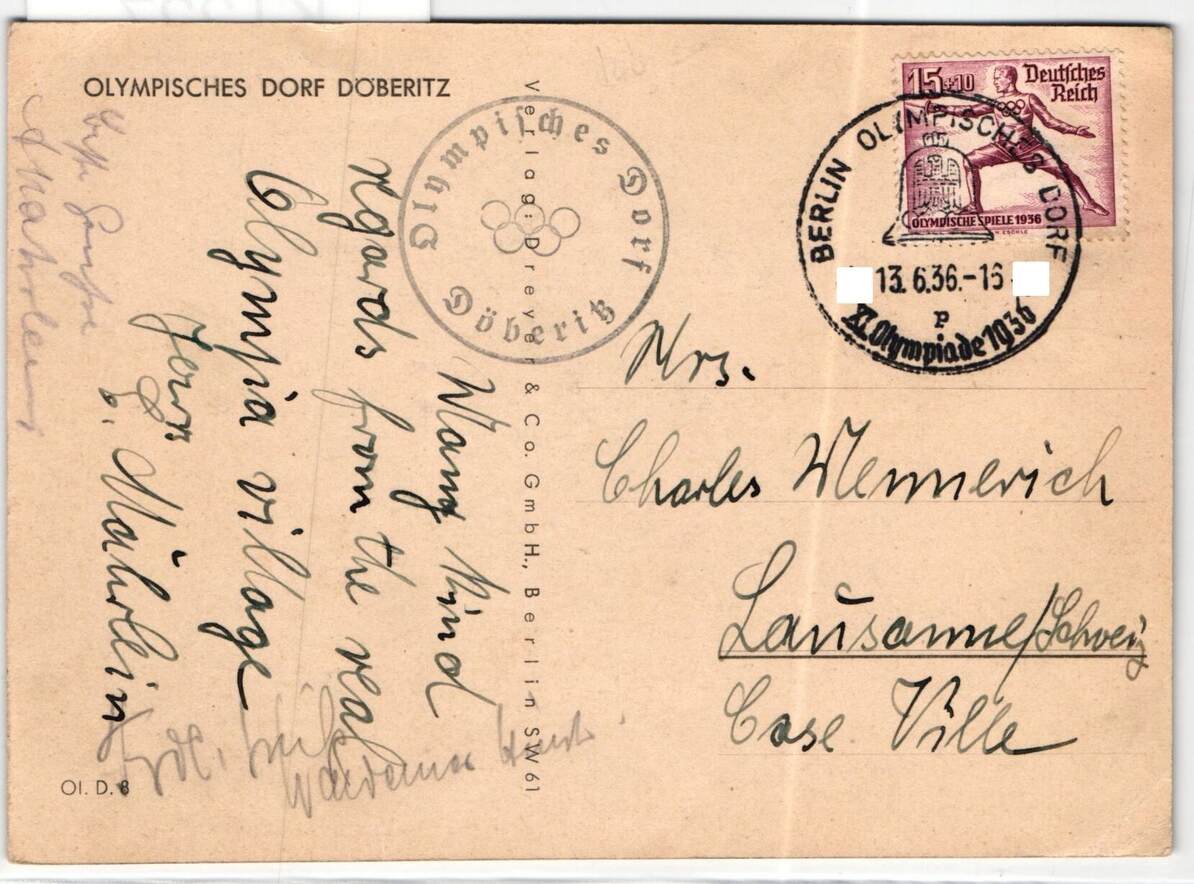 OLYMPISCHES DORF DÖBERITZ
Olympisches Dorf
Döberitz
Verlag: Dreyer & Co. GmbH., Berlin SW 61
15+10 Deutsches
Reich
OLYMPISCHE SPIELE 1936
BERLIN OLYMPISCHES DORF
13.6.36.-16
P
XI. Olympiade 1936
Many kind
rgards from the real
Olympia village
Yours
Mährlein
Mrs.
Charles Wennerich
Lausanne/Schweiz
Case Ville
Waldemar
Ol. D. 8